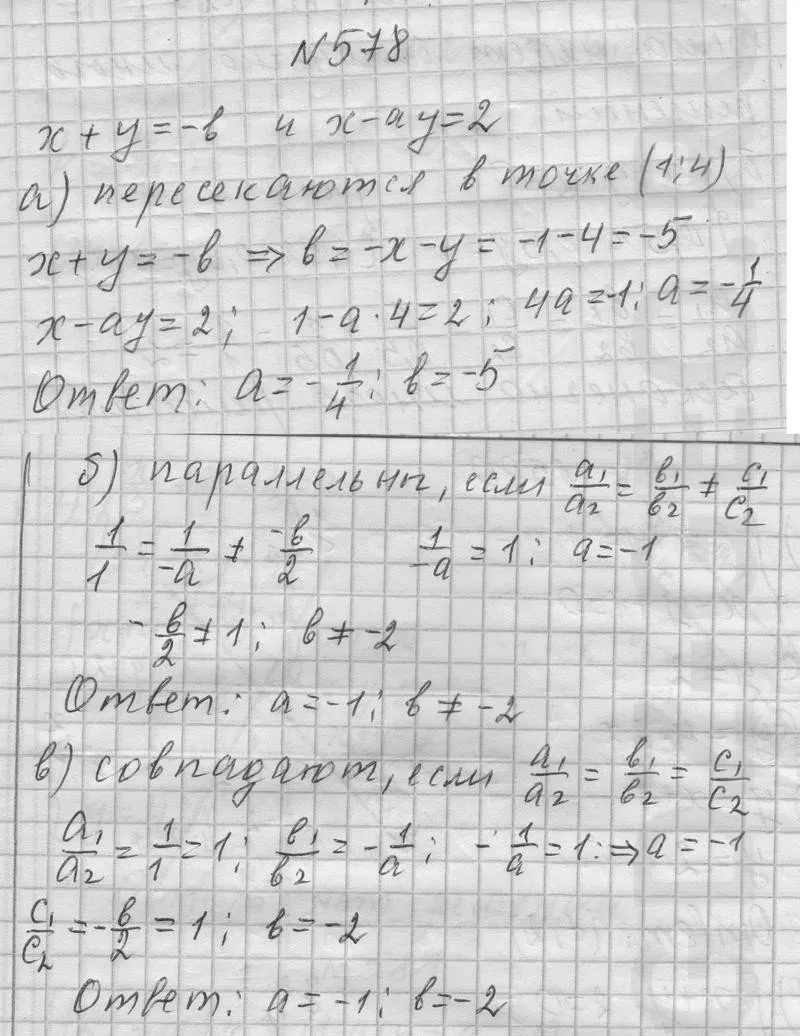 N578
x + y = -в и x - ay = 2
а) пересекаются в точке (1; 4)
x + y = -в ⇒ в = -x - y = -1 - 4 = -5
x - ay = 2; 1 - a · 4 = 2; 4a = -1; a = -1/4
Ответ: a = -1/4; в = -5
б) параллельны, если a₁/a₂ = в₁/в₂ ≠ c₁/c₂
1/1 = 1/-a ≠ -в/2 1/-a = 1; a = -1
-в/2 ≠ 1; в ≠ -2
Ответ: a = -1; в ≠ -2
в) совпадают, если a₁/a₂ = в₁/в₂ = c₁/c₂
a₁/a₂ = 1/1 = 1; в₁/в₂ = -1/a; -1/a = 1: ⇒ a = -1
c₁/c₂ = -в/2 = 1; в = -2
Ответ: a = -1; в = -2